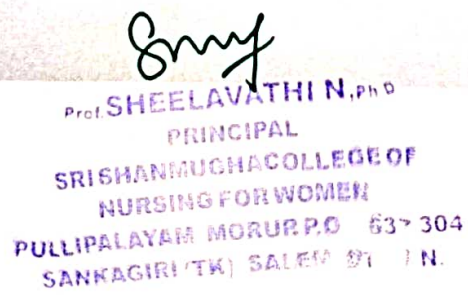 Prof. SHEELAVATHI N, Ph D
PRINCIPAL
SRI SHANMUGHA COLLEGE OF
NURSING FOR WOMEN
PULLIPALAYAM MORUR P.O 304
SANKAGIRI (TK) SALEM N.